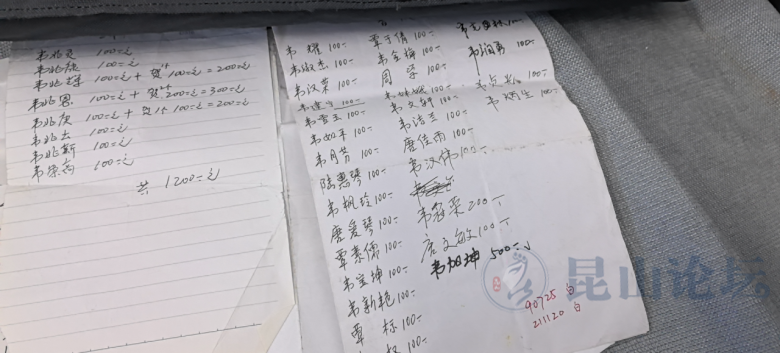 韦兆灵 100元
韦兆康 100元
韦兆辉 100元 + 贺礼 100元 = 200元
韦兆恩 100元 + 贺礼 200元 = 300元
韦兆庚 100元 + 贺礼 100元 = 200元
韦兆吉 100元
韦兆新 100元
韦荣高 100元
共 1200元
韦 耀 100-
韦淑志 100-
韦汉荣 100-
韦雪玉 100-
韦如平 100-
韦月芳 100-
陆惠琴 100-
韦枫玲 100-
唐爱琴 100-
覃素儒 100-
韦宝坤 100-
韦新艳 100-
覃 标 100-
100-
覃于倩 100-
韦金梅 100-
周 荣 100-
100-
韦文静 100-
韦洁兰 100-
唐佳雨 100-
韦汉伟 100-
韦君采 200-
唐文敏 100-
韦旭坤 500-
100-
韦润勇 100-
100-
韦炳生 100-
90725 白
211120 白
昆山论坛